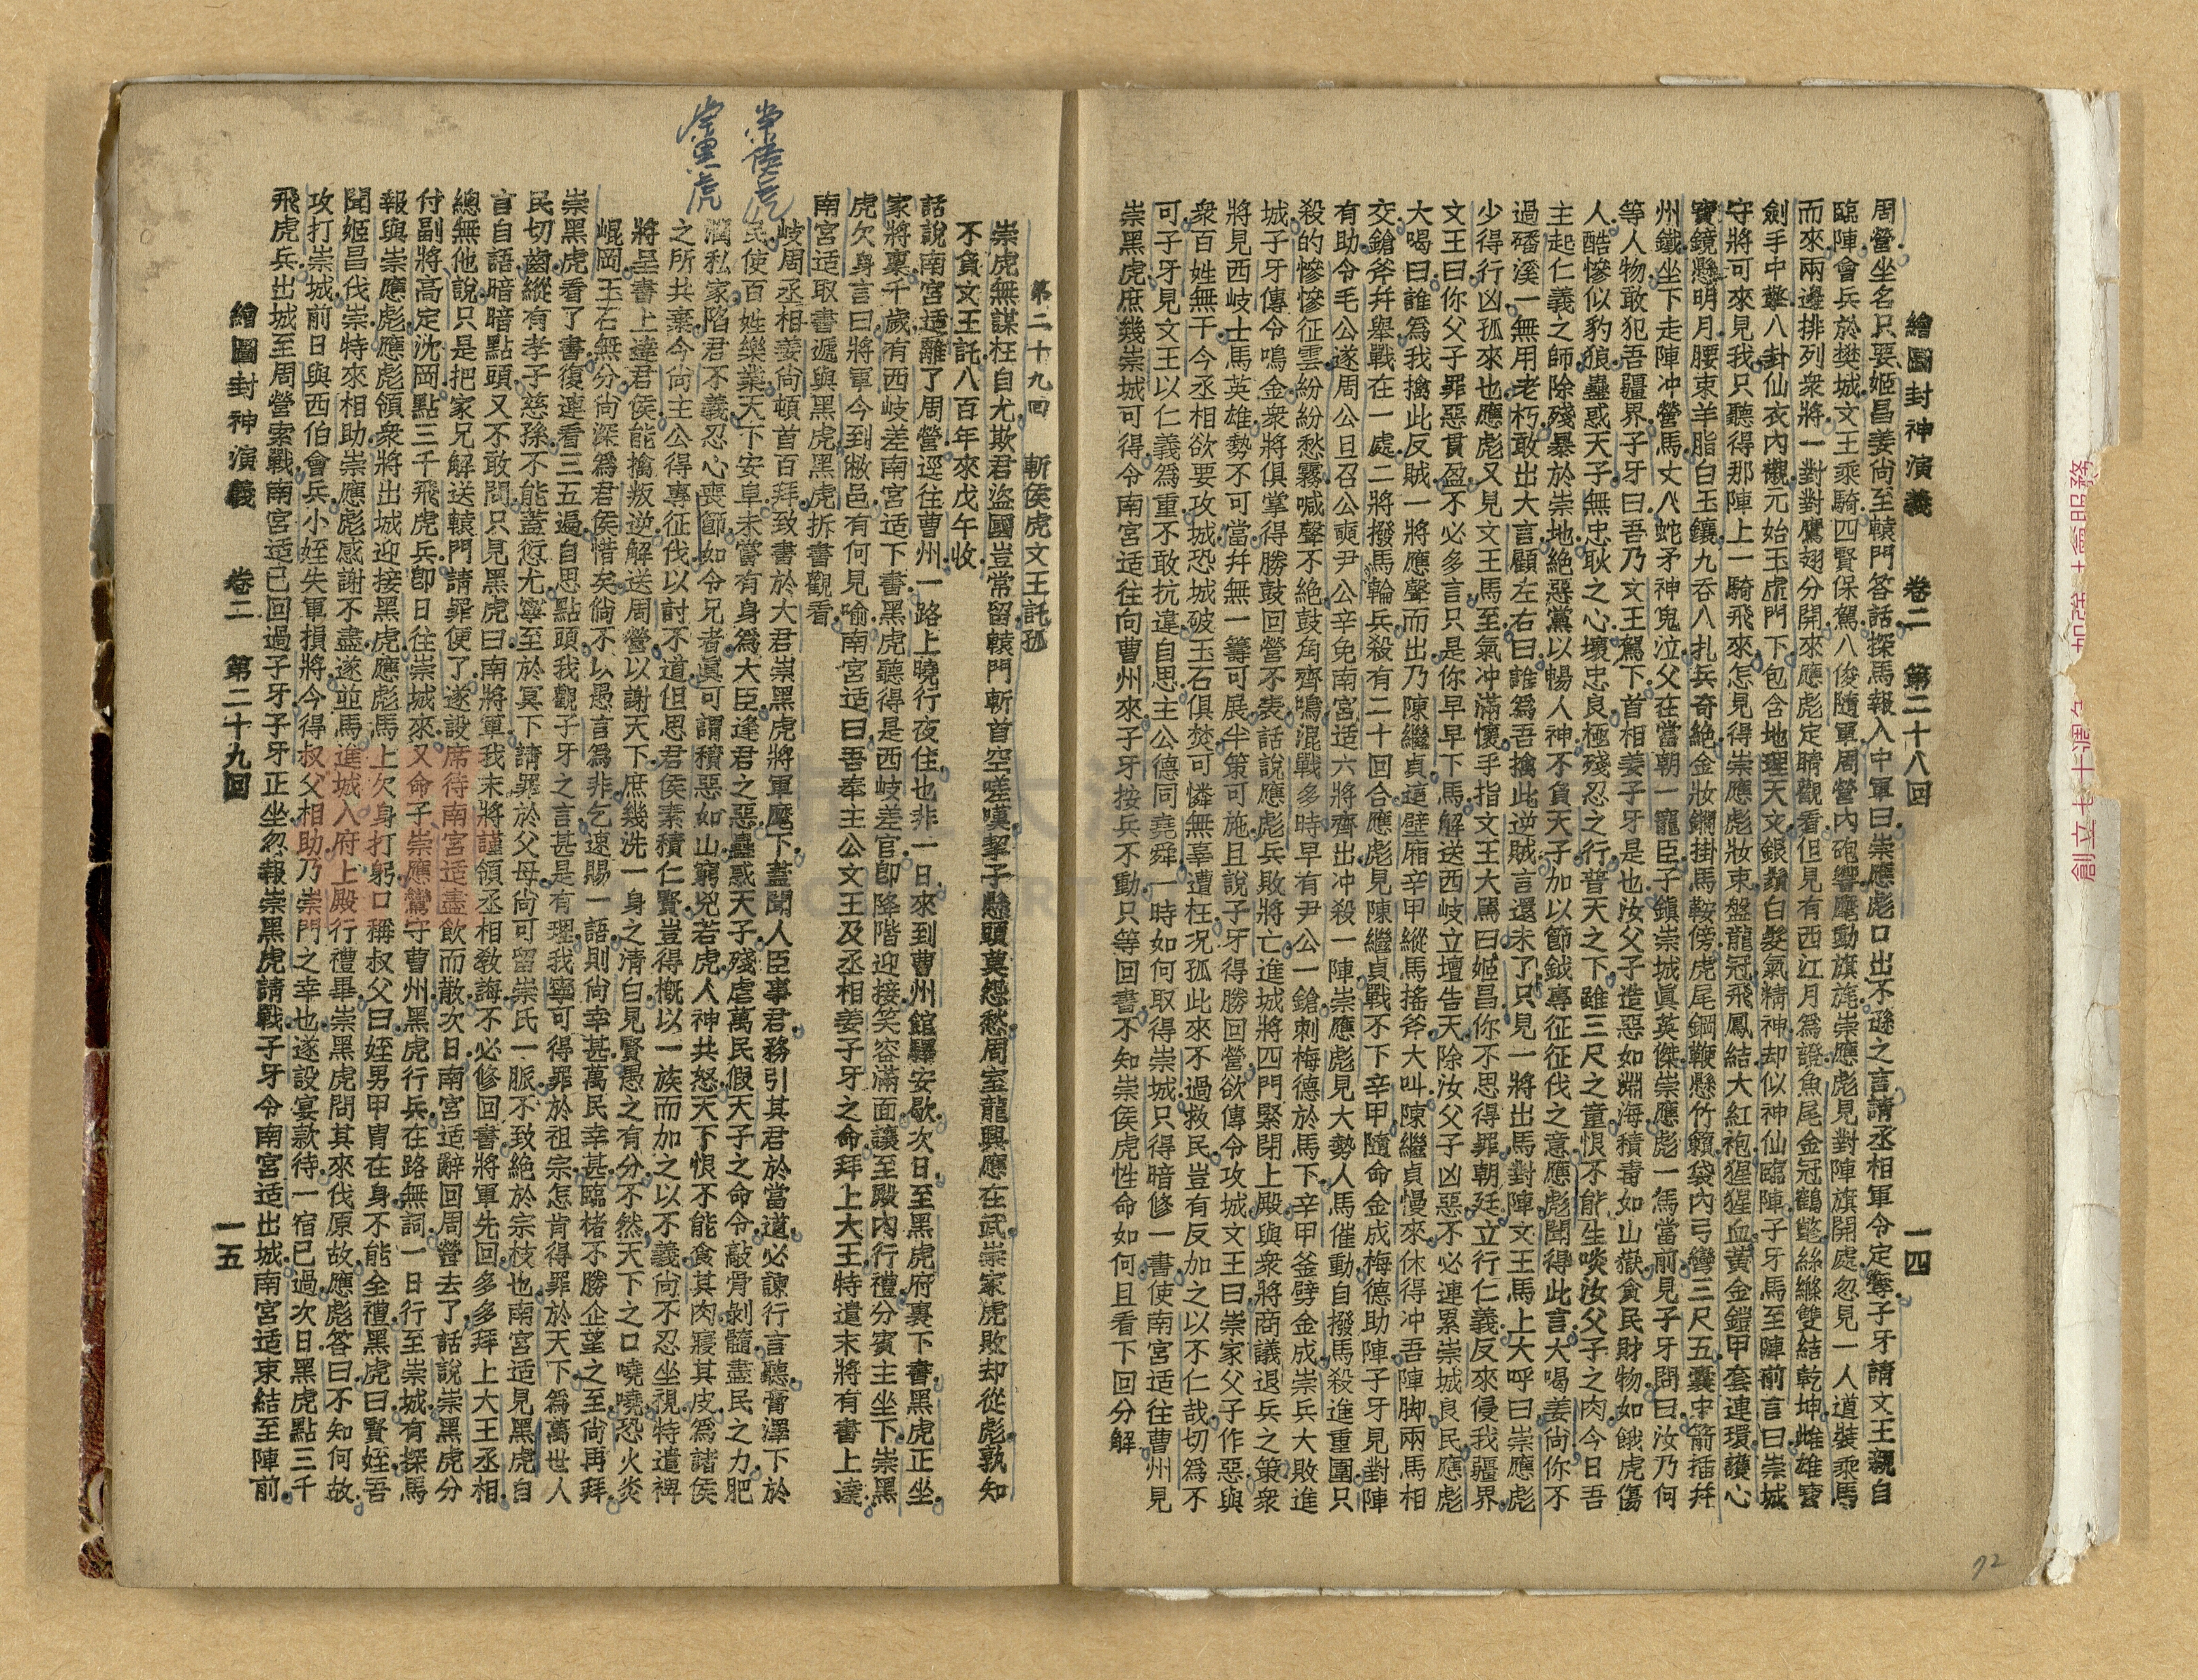 繪圖封神演義　卷二　第二十八回　一四
周營坐名只要姬昌姜尚至轅門答話探馬報入中軍曰崇應彪口出不遜之言請丞相軍令定奪子牙請文王親自
臨陣會兵於樊城文王乘騎四賢保駕八俊隨軍周營內砲響麾動旗旄崇應彪見對陣旗開處忽見一人道裝乘馬
而來兩邊排列衆將一對對鷹翅分開來應彪定睛觀看但見有西江月爲證魚尾金冠鶴氅絲縧雙結乾坤雌雄寶
劍手中擎八卦仙衣內襯元始玉虛門下包含地理天文銀鬚白髮氣精神却似神仙臨陣子牙馬至陣前言曰崇城
守將可來見我只聽得那陣上一騎飛來怎見得崇應彪妝束盤龍冠飛鳳結大紅袍猩猩血黃金鎧甲套連環護心
寶鏡懸明月腰束羊脂白玉鑲九吞八扎兵奇絶金妝鐧掛馬鞍傍虎尾鋼鞭懸竹籟袋內弓彎三尺五囊中箭插幷
州鐵坐下走陣冲營馬丈八蛇矛神鬼泣父在當朝一寵臣子鎭崇城眞英傑崇應彪一馬當前見子牙問曰汝乃何
等人物敢犯吾疆界子牙曰吾乃文王駕下首相姜子牙是也汝父子造惡如淵海積毒如山嶽貪民財物如餓虎傷
人酷慘似豹狼蠱惑天子無忠耿之心壞忠良極殘忍之行普天之下雖三尺之童恨不能生啖汝父子之肉今日吾
主起仁義之師除殘暴於崇地絶惡黨以暢人神不負天子加以節鉞專征征伐之意應彪聞得此言大喝姜尙你不
過磻溪一無用老朽敢出大言顧左右曰誰爲吾擒此逆賊言還未了只見一將出馬對陣文王馬上大呼曰崇應彪
少得行凶孤來也應彪又見文王馬至氣冲滿懷手指文王大罵曰姬昌你不思得罪朝廷立行仁義反來侵我疆界
文王曰你父子罪惡貫盈不必多言只是你早早下馬解送西岐立壇告天除汝父子凶惡不必連累崇城良民應彪
大喝曰誰爲我擒此反賊一將應聲而出乃陳繼貞這壁廂辛甲縱馬搖斧大叫陳繼貞慢來休得冲吾陣脚兩馬相
交鎗斧幷舉戰在一處二將撥馬輪兵殺有二十回合應彪見陳繼貞戰不下辛甲隨命金成梅德助陣子牙見對陣
有助令毛公遂周公旦召公奭尹公辛免南宮适六將齊出冲殺一陣崇應彪見大勢人馬催動自撥馬殺進重圍只
殺的慘慘征雲紛紛愁霧喊聲不絶鼓角齊鳴混戰多時早有尹公一鎗刺梅德於馬下辛甲釜劈金成崇兵大敗進
城子牙傳令鳴金衆將俱掌得勝鼓回營不表話說應彪兵敗將亡進城將四門緊閉上殿與衆將商議退兵之策衆
將見西岐士馬英雄勢不可當幷無一籌可展半策可施且說子牙得勝回營欲傳令攻城文王曰崇家父子作惡與
衆百姓無干今丞相欲要攻城恐城破玉石俱焚可憐無辜遭枉况孤此來不過救民豈有反加之以不仁哉切爲不
可子牙見文王以仁義爲重不敢抗違自思主公德同堯舜一時如何取得崇城只得暗修一書使南宮适往曹州見
崇黑虎庶幾崇城可得令南宮适往向曹州來子牙按兵不動只等回書不知崇侯虎性命如何且看下回分解
72
第二十九回　斬侯虎文王託孤
崇虎無謀枉自尤欺君盜國豈常留轅門斬首空嗟嘆挈子懸頭莫怨愁周室龍興應在武崇家虎敗却從彪孰知
不負文王託八百年來戊午收
話說南宮适離了周營逕往曹州一路上曉行夜住也非一日來到曹州館驛安歇次日至黑虎府裏下書黑虎正坐
家將稟千歲有西岐差南宮适下書黑虎聽得是西岐差官卽降階迎接笑容滿面讓至殿內行禮分賓主坐下崇黑
虎欠身言曰將軍今到敝邑有何見喻南宮适曰吾奉主公文王及丞相姜子牙之命拜上大王特遣末將有書上達
南宮适取書遞與黑虎黑虎拆書觀看
岐周丞相姜尙頓首百拜致書於大君崇黑虎將軍麾下蓋聞人臣事君務引其君於當道必諫行言聽膏澤下於
民使百姓樂業天下安阜未嘗有身爲大臣逢君之惡蠱惑天子殘虐萬民假天子之命令敲骨剝髓盡民之力肥
潤私家陷君不義忍心喪節如令兄者眞可謂積惡如山窮兇若虎人神共怒天下恨不能食其肉寢其皮爲諸侯
之所共棄今尙主公得專征伐以討不道但思君侯素積仁賢豈得槪以一族而加之以不義尙不忍坐視特遣裨
將呈書上達君侯能擒叛逆解送周營以謝天下庶幾洗一身之淸白見賢愚之有分不然天下之口嘵嘵恐火炎
崐岡玉石無分尙深爲君侯惜矣倘不以愚言爲非乞速賜一語則尙幸甚萬民幸甚臨楮不勝企望之至尙再拜
崇黑虎看了書復連看三五遍自思點頭我觀子牙之言甚是有理我寧可得罪於祖宗怎肯得罪於天下爲萬世人
民切齒縱有孝子慈孫不能蓋愆尤寧至於冥下請罪於父母尙可留崇氏一脈不致絶於宗枝也南宮适見黑虎自
言自語暗暗點頭又不敢問只見黑虎曰南將軍我末將謹領丞相敎誨不必修回書將軍先回多多拜上大王丞相
總無他說只是把家兄解送轅門請罪便了遂設席待南宮适盡飲而散次日南宮适辭回周營去了話說崇黑虎分
付副將高定沈岡點三千飛虎兵卽日往崇城來又命子崇應鸞守曹州黑虎行兵在路無詞一日行至崇城有探馬
報與崇應彪應彪領衆將出城迎接黑虎應彪馬上欠身打躬口稱叔父曰姪男甲冑在身不能全禮黑虎曰賢姪吾
聞姬昌伐崇特來相助崇應彪感謝不盡遂並馬進城入府上殿行禮畢崇黑虎問其來伐原故應彪答曰不知何故
攻打崇城前日與西伯會兵小姪失軍損將今得叔父相助乃崇門之幸也遂設宴款待一宿已過次日黑虎點三千
飛虎兵出城至周營索戰南宮适已回過子牙子牙正坐忽報崇黑虎請戰子牙令南宮适出城南宮适束結至陣前
繪圖封神演義　卷二　第二十九回　一五
崇侯虎
崇黑虎